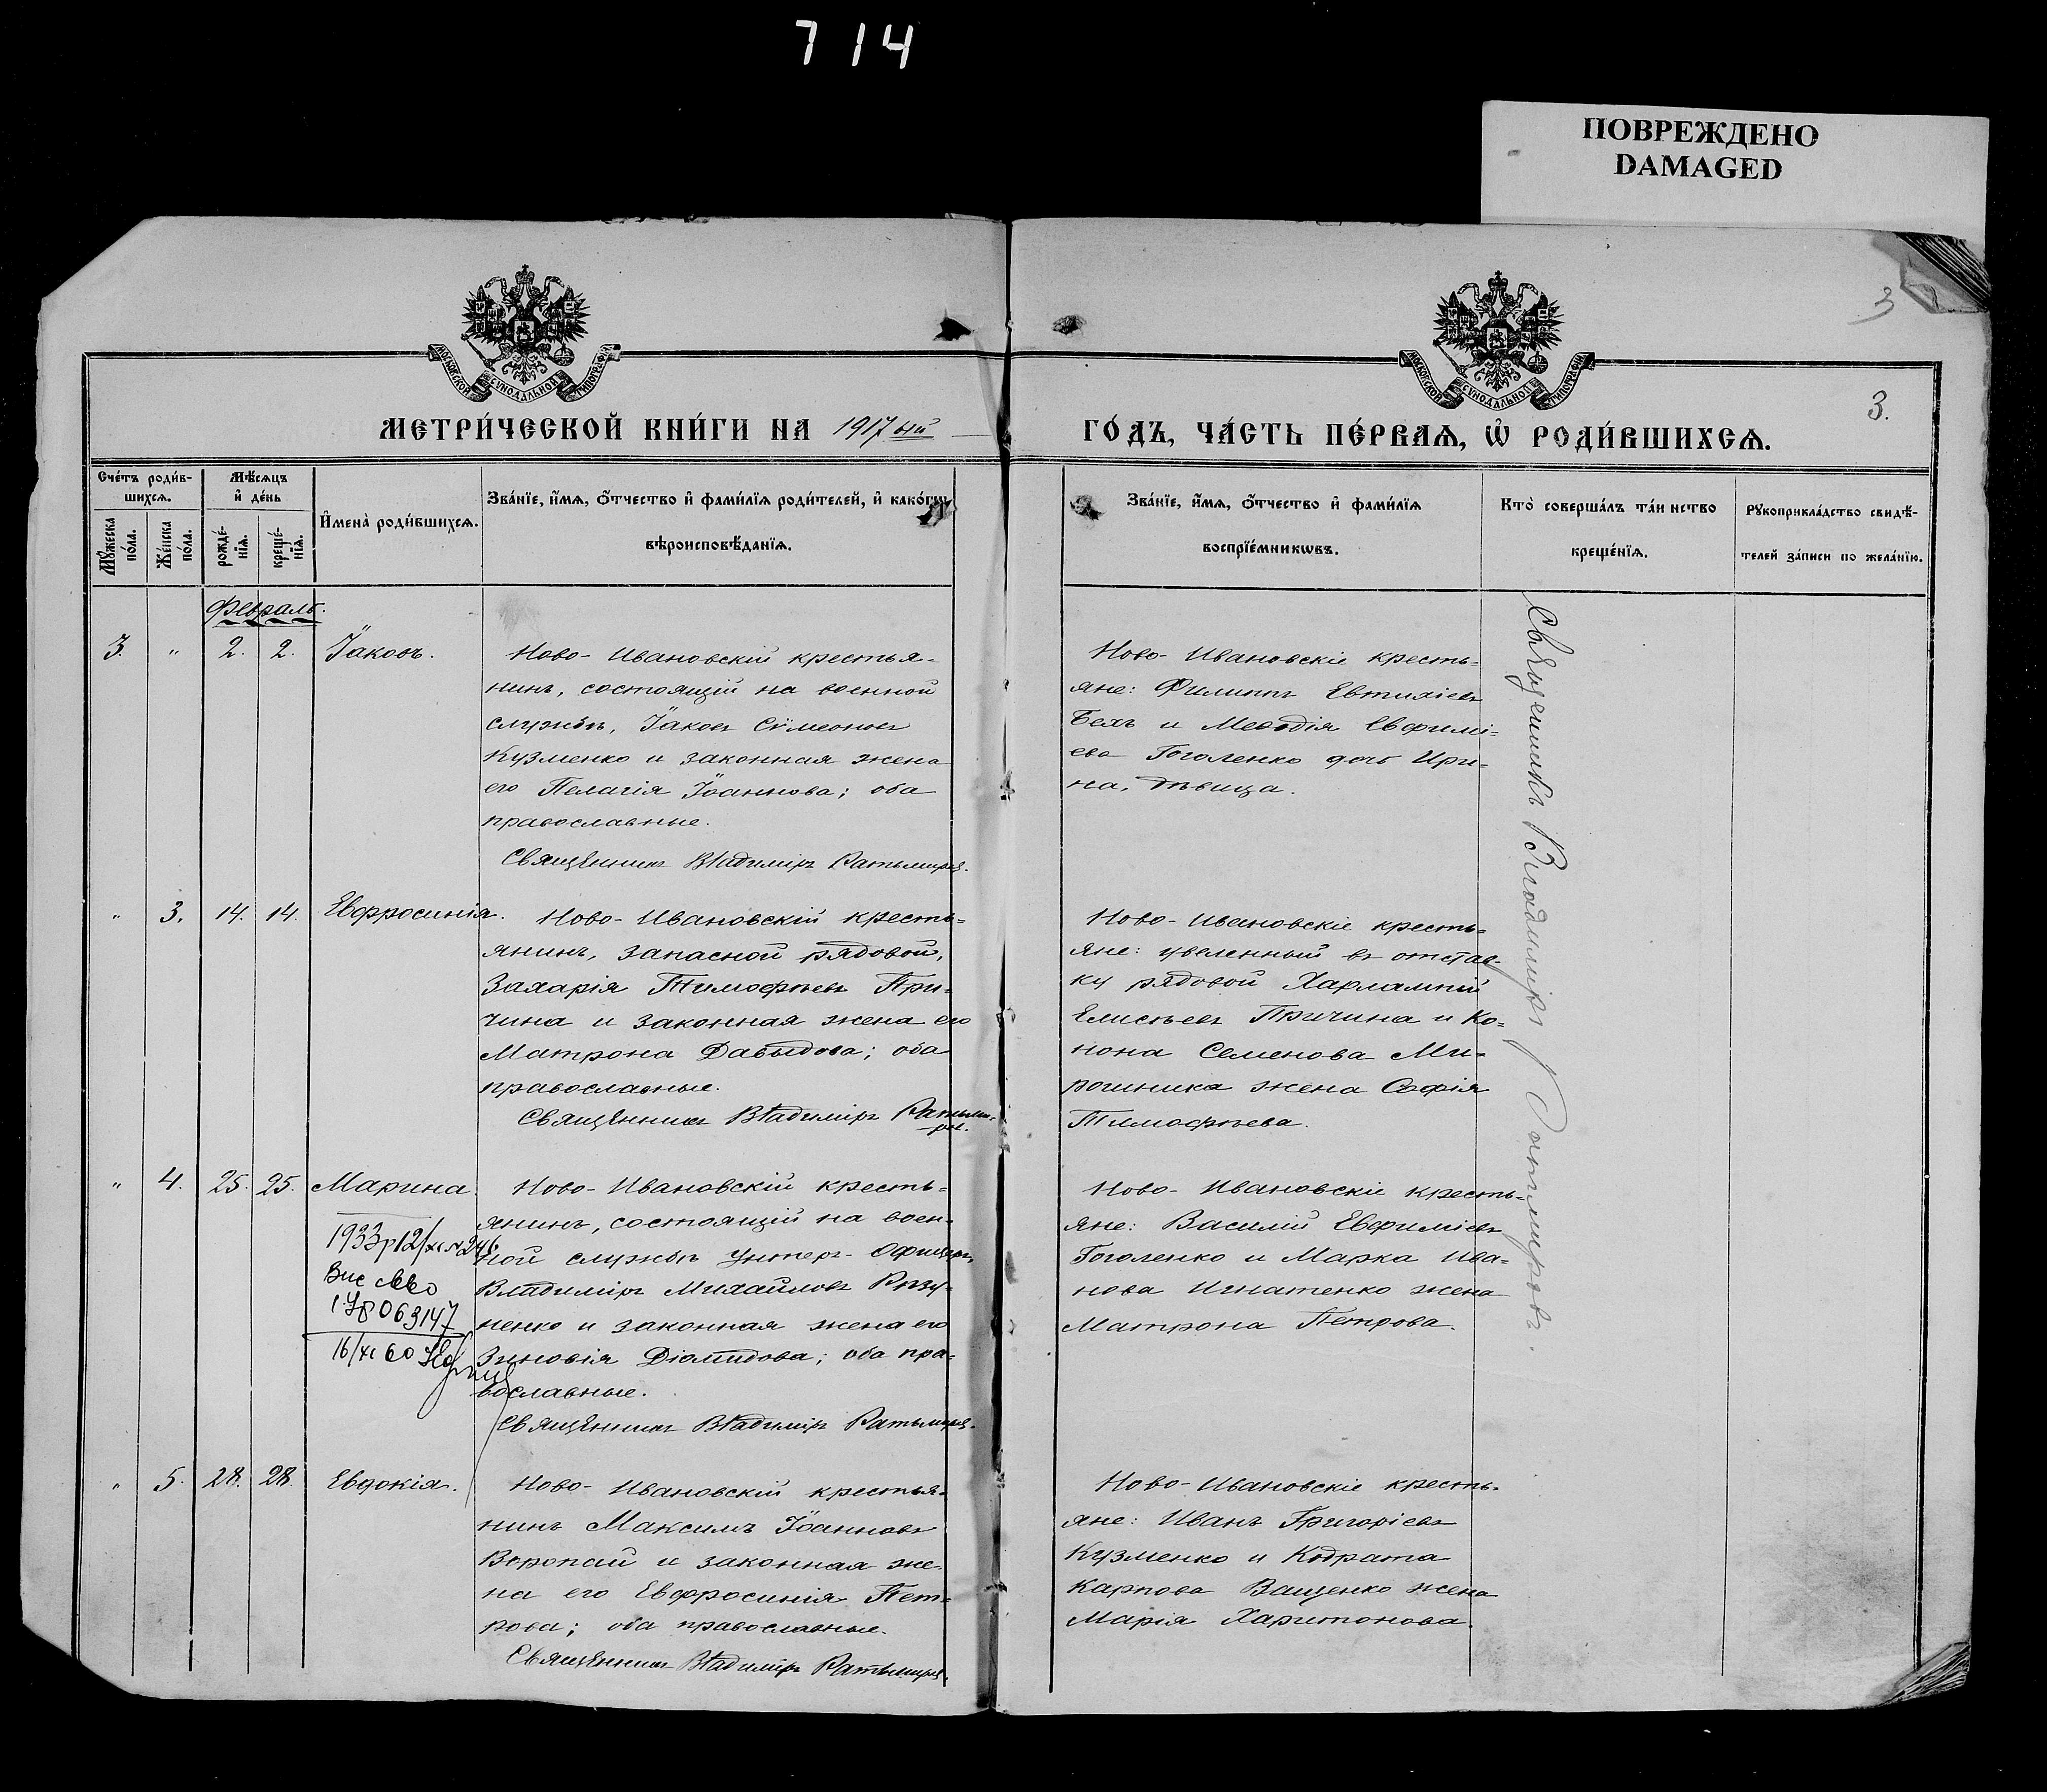 714
ПОВРЕЖДЕНО
DAMAGED
3
3.
МОСКОВСКОЙ СѴНОДАЛЬНОЙ ТИПОГРАФІИ
МОСКОВСКОЙ СѴНОДАЛЬНОЙ ТИПОГРАФІИ
МЕТРИ́ЧЕСКОЙ КНИ́ГИ НА 1917ый
ГО́ДЪ, ЧА́СТЬ ПЕ́РВАѦ, Ѡ҆ РОДИ́ВШИХСѦ.
Сче́тъ роди́в-
шихсѧ.
Мѣ́сѧцъ
и҆ де́нь
Мꙋ́жеска
по́ла.
Же́нска
по́ла.
рожде́-
нїѧ.
креще́-
нїѧ.
И҆мена̀ роди́вшихсѧ.
Зва́нїе, и҆́мѧ, ѻ҆́тчество и҆ фами́лїѧ роди́телей, и҆ како́гѡ
вѣроисповѣ́данїѧ.
Зва́нїе, и҆́мѧ, ѻ҆́тчество и҆ фами́лїѧ
воспрїе́мникѡвъ.
Кто̀ соверша́лъ та́инство
креще́нїѧ.
Рꙋкоприкла́дство свидѣ́-
телей за́писи по жела́нїю.
Февраль.
3. " 2. 2. Їаковъ.
Ново-Ивановскій крестья-
нинъ, состоящій на военной
службѣ, Їаковъ Сѷмеоновъ
Кузменко и законная жена
его Пелагія Їоаннова; оба
православные.
Священникъ Владиміръ Ратьмировъ.
Ново-Ивановскіе кресть-
яне: Филиппъ Евтихіевъ
Бехъ и Меѳодія Евфимі-
ева Гоголенко дочь Ири-
на, дѣвица.
" 3. 14. 14. Евфросинія.
Ново-Ивановскій кресть-
янинъ, запасной рядовой,
Захарія Тимофѣевъ При-
чина и законная жена его
Матрона Давыдова; оба
православные.
Священникъ Владиміръ Ратьми-
ровъ.
Ново-Ивановскіе кресть-
яне: уволенный въ отстав-
ку рядовой Харлампій
Елисѣевъ Причина и Ко-
нона Семенова Ми-
рошника жена Софія
Тимофѣева.
" 4. 25. 25. Марина.
1933р 12/xi №246
063147
16/xi 60
Ново-Ивановскій кресть-
янинъ, состоящій на воен-
ной службѣ унтеръ-офицеръ,
Владиміръ Михайловъ
ненко и законная жена его
Зиновія Діомидова; оба пра-
вославные.
Священникъ Владиміръ Ратьмировъ.
Ново-Ивановскіе кресть-
яне: Василій Евфиміевъ
Гоголенко и Марка Ива-
нова Игнатенко жена
Матрона Петрова.
" 5. 28. 28. Евдокія.
Ново-Ивановскій крестья-
нинъ Максимъ Їоанновъ
Воропай и законная же-
на его Евфросинія Пет-
рова; оба православные.
Священникъ Владиміръ Ратьмировъ.
Ново-Ивановскіе кресть-
яне: Иванъ Григоріевъ
Кузменко и Кодрата
Карпова Ващенко жена
Марія Харитонова.
Священникъ Владиміръ Ратьмировъ.